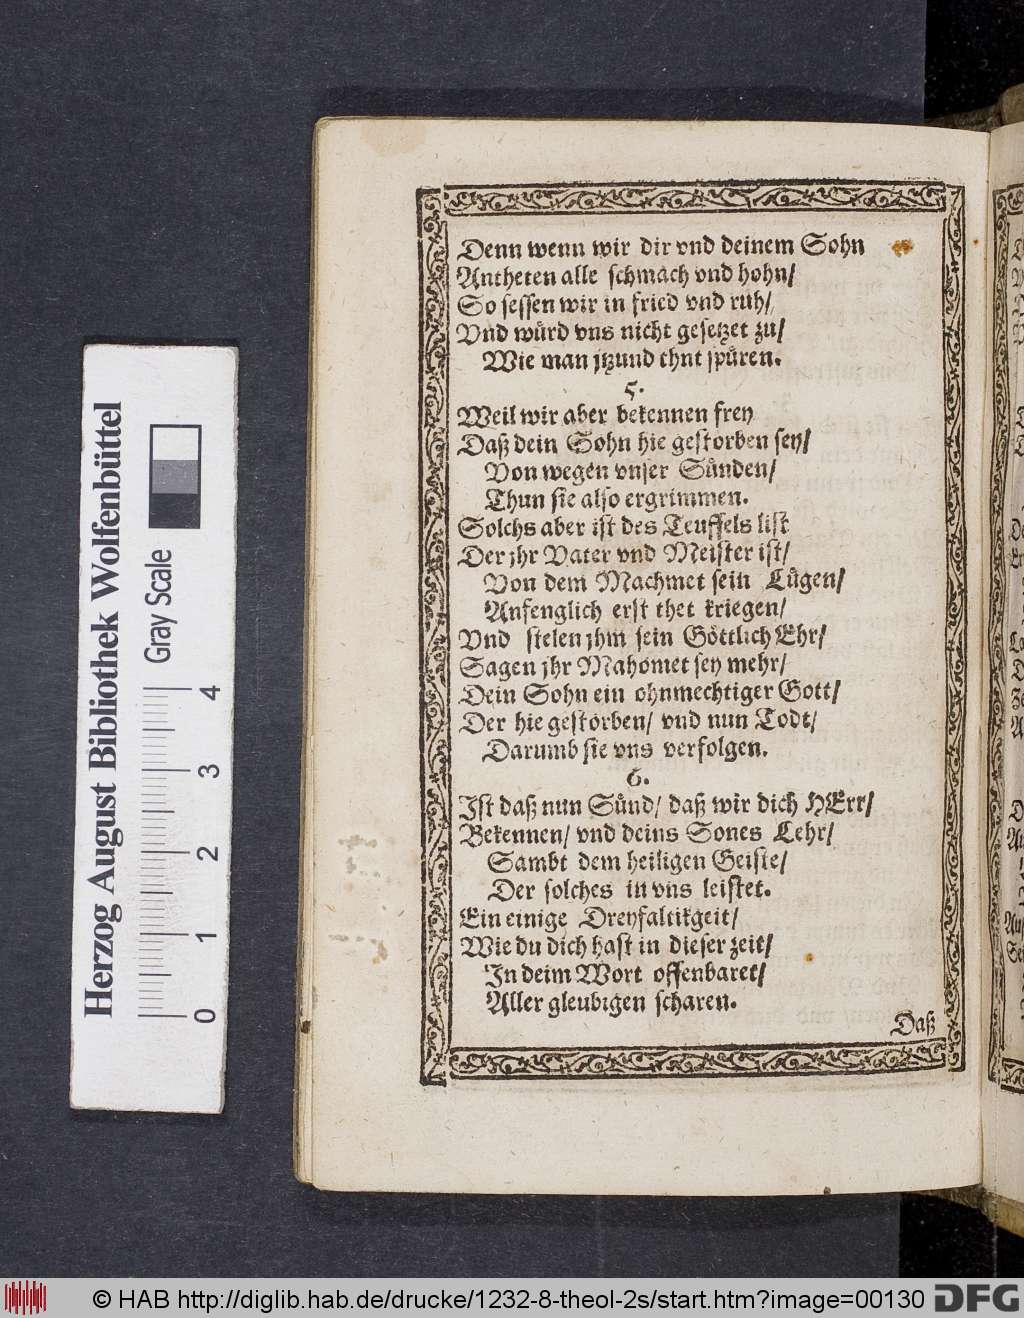 Denn wenn wir dir vnd deinem Sohn
Antheten alle schmach vnd hohn/
So sessen wir in fried vnd ruh/
Vnd würd vns nicht gesetzet zu/
Wie man jtzund thut spüren.
5.
Weil wir aber bekennen frey
Daß dein Sohn hie gestorben sey/
Von wegen vnser Sünden/
Thun sie also ergrimmen.
Solchs aber ist des Teuffels list
Der jhr Vater vnd Meister ist/
Von dem Machmet sein Lügen/
Anfenglich erst thet kriegen/
Vnd stelen jhm sein Göttlich Ehr/
Sagen jhr Mahomet sey mehr/
Dein Sohn ein ohnmechtiger Gott/
Der hie gestorben/ vnd nun Todt/
Darumb sie vns verfolgen.
6.
Ist daß nun Sünd/ daß wir dich HErr/
Bekennen/ vnd deins Sones Lehr/
Sambt dem heiligen Geiste/
Der solches in vns leistet.
Ein einige Dreyfaltikgeit/
Wie du dich hast in dieser zeit/
In deim Wort offenbaret/
Aller gleubigen scharen.
Daß
Herzog August Bibliothek Wolfenbüttel
Gray Scale
0 1 2 3 4
© HAB http://diglib.hab.de/drucke/1232-8-theol-2s/start.htm?image=00130
DFG